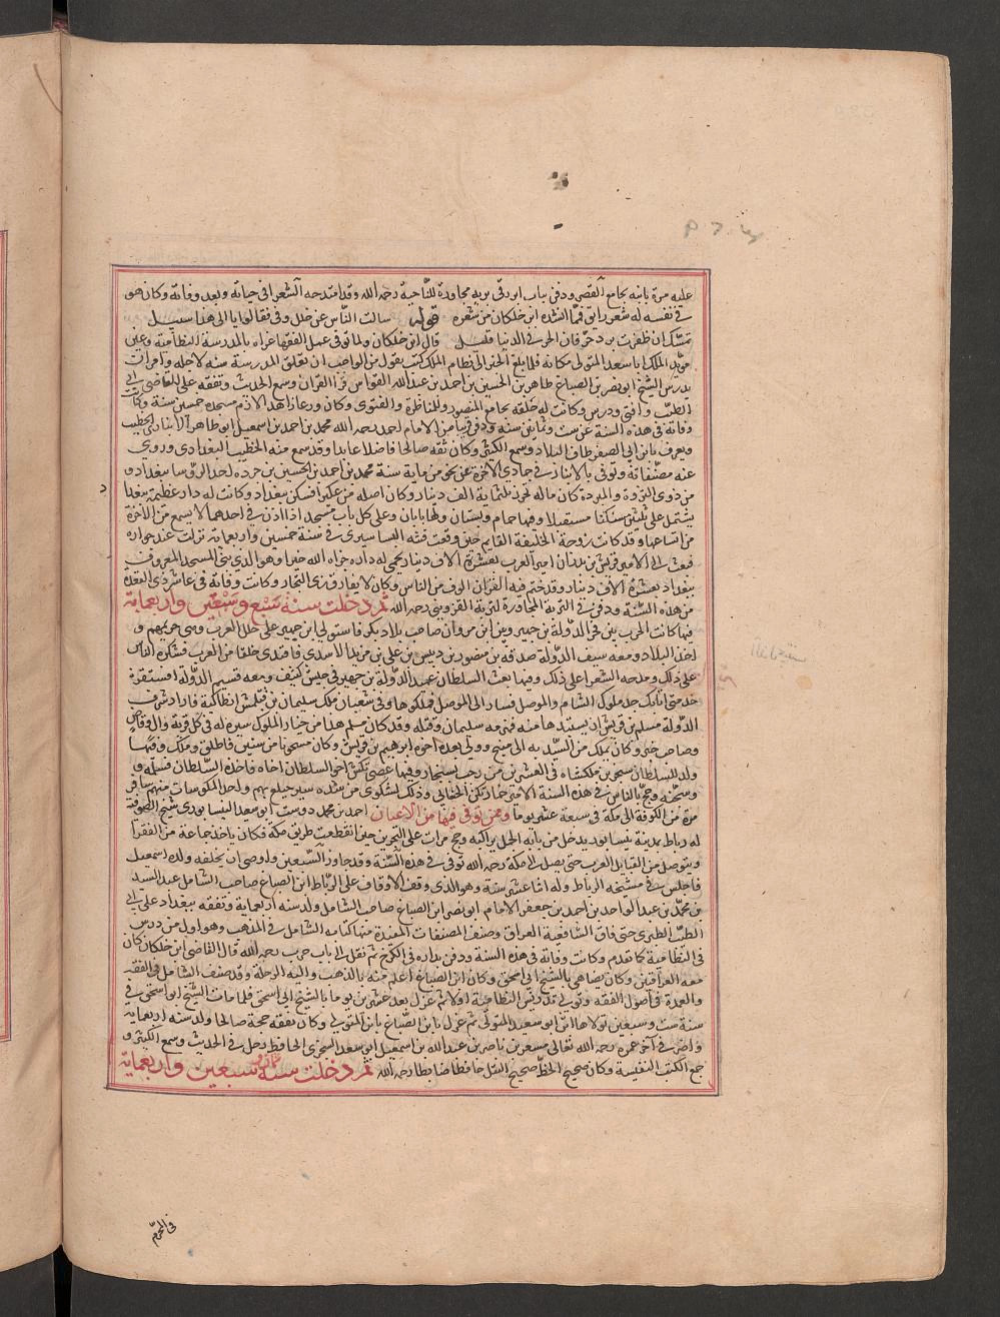 عليه مرة ثانية بجامع القصر ودفن بباب ابرز في تربة مجاورة للناحية رحمه الله وقد امتدحه الشعراء في حياته وبعد وفاته وكان هو
في نفسه له شعر رائق فما انشده ابن خلكان من شعره قوله سالت الناس عن خل وفي فقالوا ما الى هذا سبيل
تمسك ان ظفرت بود حر فان الحر في الدنيا قليل قال ابن خلكان ولما توفي عمل الفقهاء عزاه بالمدرسة النظامية وعين
مويد الملك ابا سعد المتولى مكانه فلما بلغ الخبر الى نظام الملك كتب يقول من الواجب ان تغلق المدرسة سنة لاجله وامر ان
يدرس الشيخ ابو نصر بن الصباغ طاهر بن الحسين بن احمد بن عبد الله القواس قرا القران وسمع الحديث وتفقه على القاضي ابي
الطيب وافتى ودرس وكانت له حلقة بجامع المنصور وللمناظرة والفتوى وكان ورعا زاهدا لازم مسجده خمسين سنة وكانت
وفاته في هذه السنة عن ست وثمانين سنة ودفن قريبا من الامام احمد رحمه الله محمد بن احمد بن اسمعيل ابو طاهر الانباري الخطيب
ويعرف بابن ابي الصقر طاف البلاد وسمع الكثير وكان ثقة صالحا فاضلا عابدا وقد سمع منه الخطيب البغدادي وروى
عنه مصنفاته وتوفي بالانبار في جمادى الاخرة عن نحو من ماية سنة محمد بن احمد بن الحسين بن جرده احد الروسا ببغداد و
من ذوي الثروة والمروة كان ماله نحو ثلثماية الف دينار وكان اصله من عكبرا فسكن بغداد وكانت له دار عظيمة ببغداد
يشتمل على ثلثين سكنا مستقبلا وفيها حمام وبستان ولها بابان وعلى كل باب مسجد اذا اذن في احدهما لا يسمع من الاخرة
من اتساعها وقد كانت زوجة الخليفة القايم حين وقعت فتنة البساسيري في سنة خمسين واربعماية نزلت عنده في جواره
فبعث الى الامير قريش بن بدران امير العرب بعشرة الاف دينار ليحمي له داره جزاه الله خيرا وهو الذي بنى المسجد المعروف
ببغداد بعشرة الاف دينار وقد ختم فيه القران الوف من الناس وكان لا يفارق زي التجار وكانت وفاته في عاشر ذي القعدة
من هذه السنة ودفن في التربة المجاورة لتربة القزويني رحمه الله ثم دخلت سنة سبع وسبعين واربعماية
فيها كانت الحرب بين فخر الدولة بن جهير وبين ابن مروان صاحب بلاد بكر فاستولى ابن جهير على حلل العرب وسبى حريمهم و
اخذ البلاد ومعه سيف الدولة صدقة بن منصور بن دبيس بن علي بن مزيد الاسدي فافتدى خلقا من العرب فشكره الناس
على ذلك ومدحه الشعرا على ذلك وفيها بعث السلطان عميد الدولة بن جهير في جيش كثيف ومعه قسيم الدولة اقسنقر
جد بني اتابك ملوك الشام والموصل فسار الى الموصل فملكوها وفي شعبان ملك سليمان بن قتلمش انطاكية فاراد شرف
الدولة مسلم بن قريش ان يستنقذها منه فهزمه سليمان وقتله وقد كان مسلم هذا من خيار الملوك سيرة له في كل قرية وال وقاض
وصاحب خبر وكان يملك من السندية الى منبج وولي بعده اخوه ابراهيم بن قريش وكان مسجونا من سنين فاطلق وملك وفيها
ولد للسلطان سنجر بن ملكشاه في العشرين من رجب بسنجار وفيها عصى تكش اخو السلطان اخاه فاخذه السلطان فسمله و
وسجنه وحج بالناس في هذه السنة الامير خمارتكين الحسناني وذلك لشكوى من شدة سير جيلو بهم واخذ المكوسات منهم سافر
مرة من الكوفة الى مكة في سبعة عشر يوما وممن توفي فيها من الاعيان احمد بن محمد دوست ابو سعد النيسابوري شيخ الصوفية
له رباط بمدينة نيسابور يدخل من بابه الجمل براكبه وحج مرات على التجريد حين انقطعت طريق مكة فكان ياخذ جماعة من الفقرا
ويتوصل من القبايل العرب حتى يصل الى مكة رحمه الله توفي في هذه السنة وقد جاوز التسعين واوصى ان يخلفه ولده اسمعيل
فاجلس في مشيخة الرباط وله اثنا عشر سنة وهو الذي وقف الاوقاف على الرباط ابن الصباغ صاحب الشامل عبد السيد
بن محمد بن عبد الواحد بن احمد بن جعفر الامام ابو نصر ابن الصباغ صاحب الشامل ولد سنة اربعماية وتفقه ببغداد على ابي
الطيب الطبري حتى فاق الشافعية العراق وصنف المصنفات المفيدة منها كتابه الشامل في المذهب وهو اول من درس
في النظامية كما تقدم وكانت وفاته في هذه السنة ودفن بداره في الكرخ ثم نقل الى باب حرب رحمه الله قال القاضي ابن خلكان كان
معه العراقين وكان يضاهي بالشيخ ابي اسحق وكان ابن الصباغ اعلم منه بالمذهب واليه الرحلة وقد صنف الشامل في الفقه
والعمدة في اصول الفقه وتولى تدريس النظامية اولا ثم عزل بعد عشرين يوما بالشيخ ابي اسحق فلما مات الشيخ ابو اسحق في
سنة ست وسبعين تولاها ابن ابو سعيد المتولى ثم عزل بابن الصباغ بابن المتولي وكان ثقة حجة صالحا ولد سنة اربعماية
واضر في اخر عمره رحمه الله تعالى مسعود بن ناصر بن عبد الله بن اسمعيل ابو سعد السجزي الحافظ رحل في الحديث وسمع الكثير و
جمع الكتب النفيسة وكان صحيح الخط صحيح النقل حافظا ضابطا رحمه الله ثم دخلت سنة ثمان وسبعين واربعماية
في المحرم